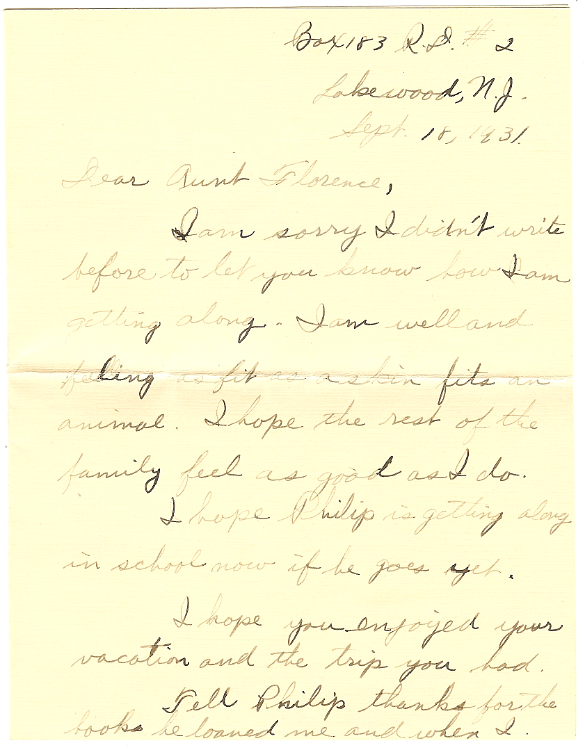 Box 183 R.D. # 2
Lakewood, N.J.
Sept. 18, 1931.
Dear Aunt Florence,
I am sorry I didn't write
before to let you know how I am
getting along. I am well and
feeling as fit as a skin fits an
animal. I hope the rest of the
family feel as good as I do.
I hope Philip is getting along
in school now if he goes yet.
I hope you enjoyed your
vacation and the trip you had.
Tell Philip thanks for the
books he loaned me and when I